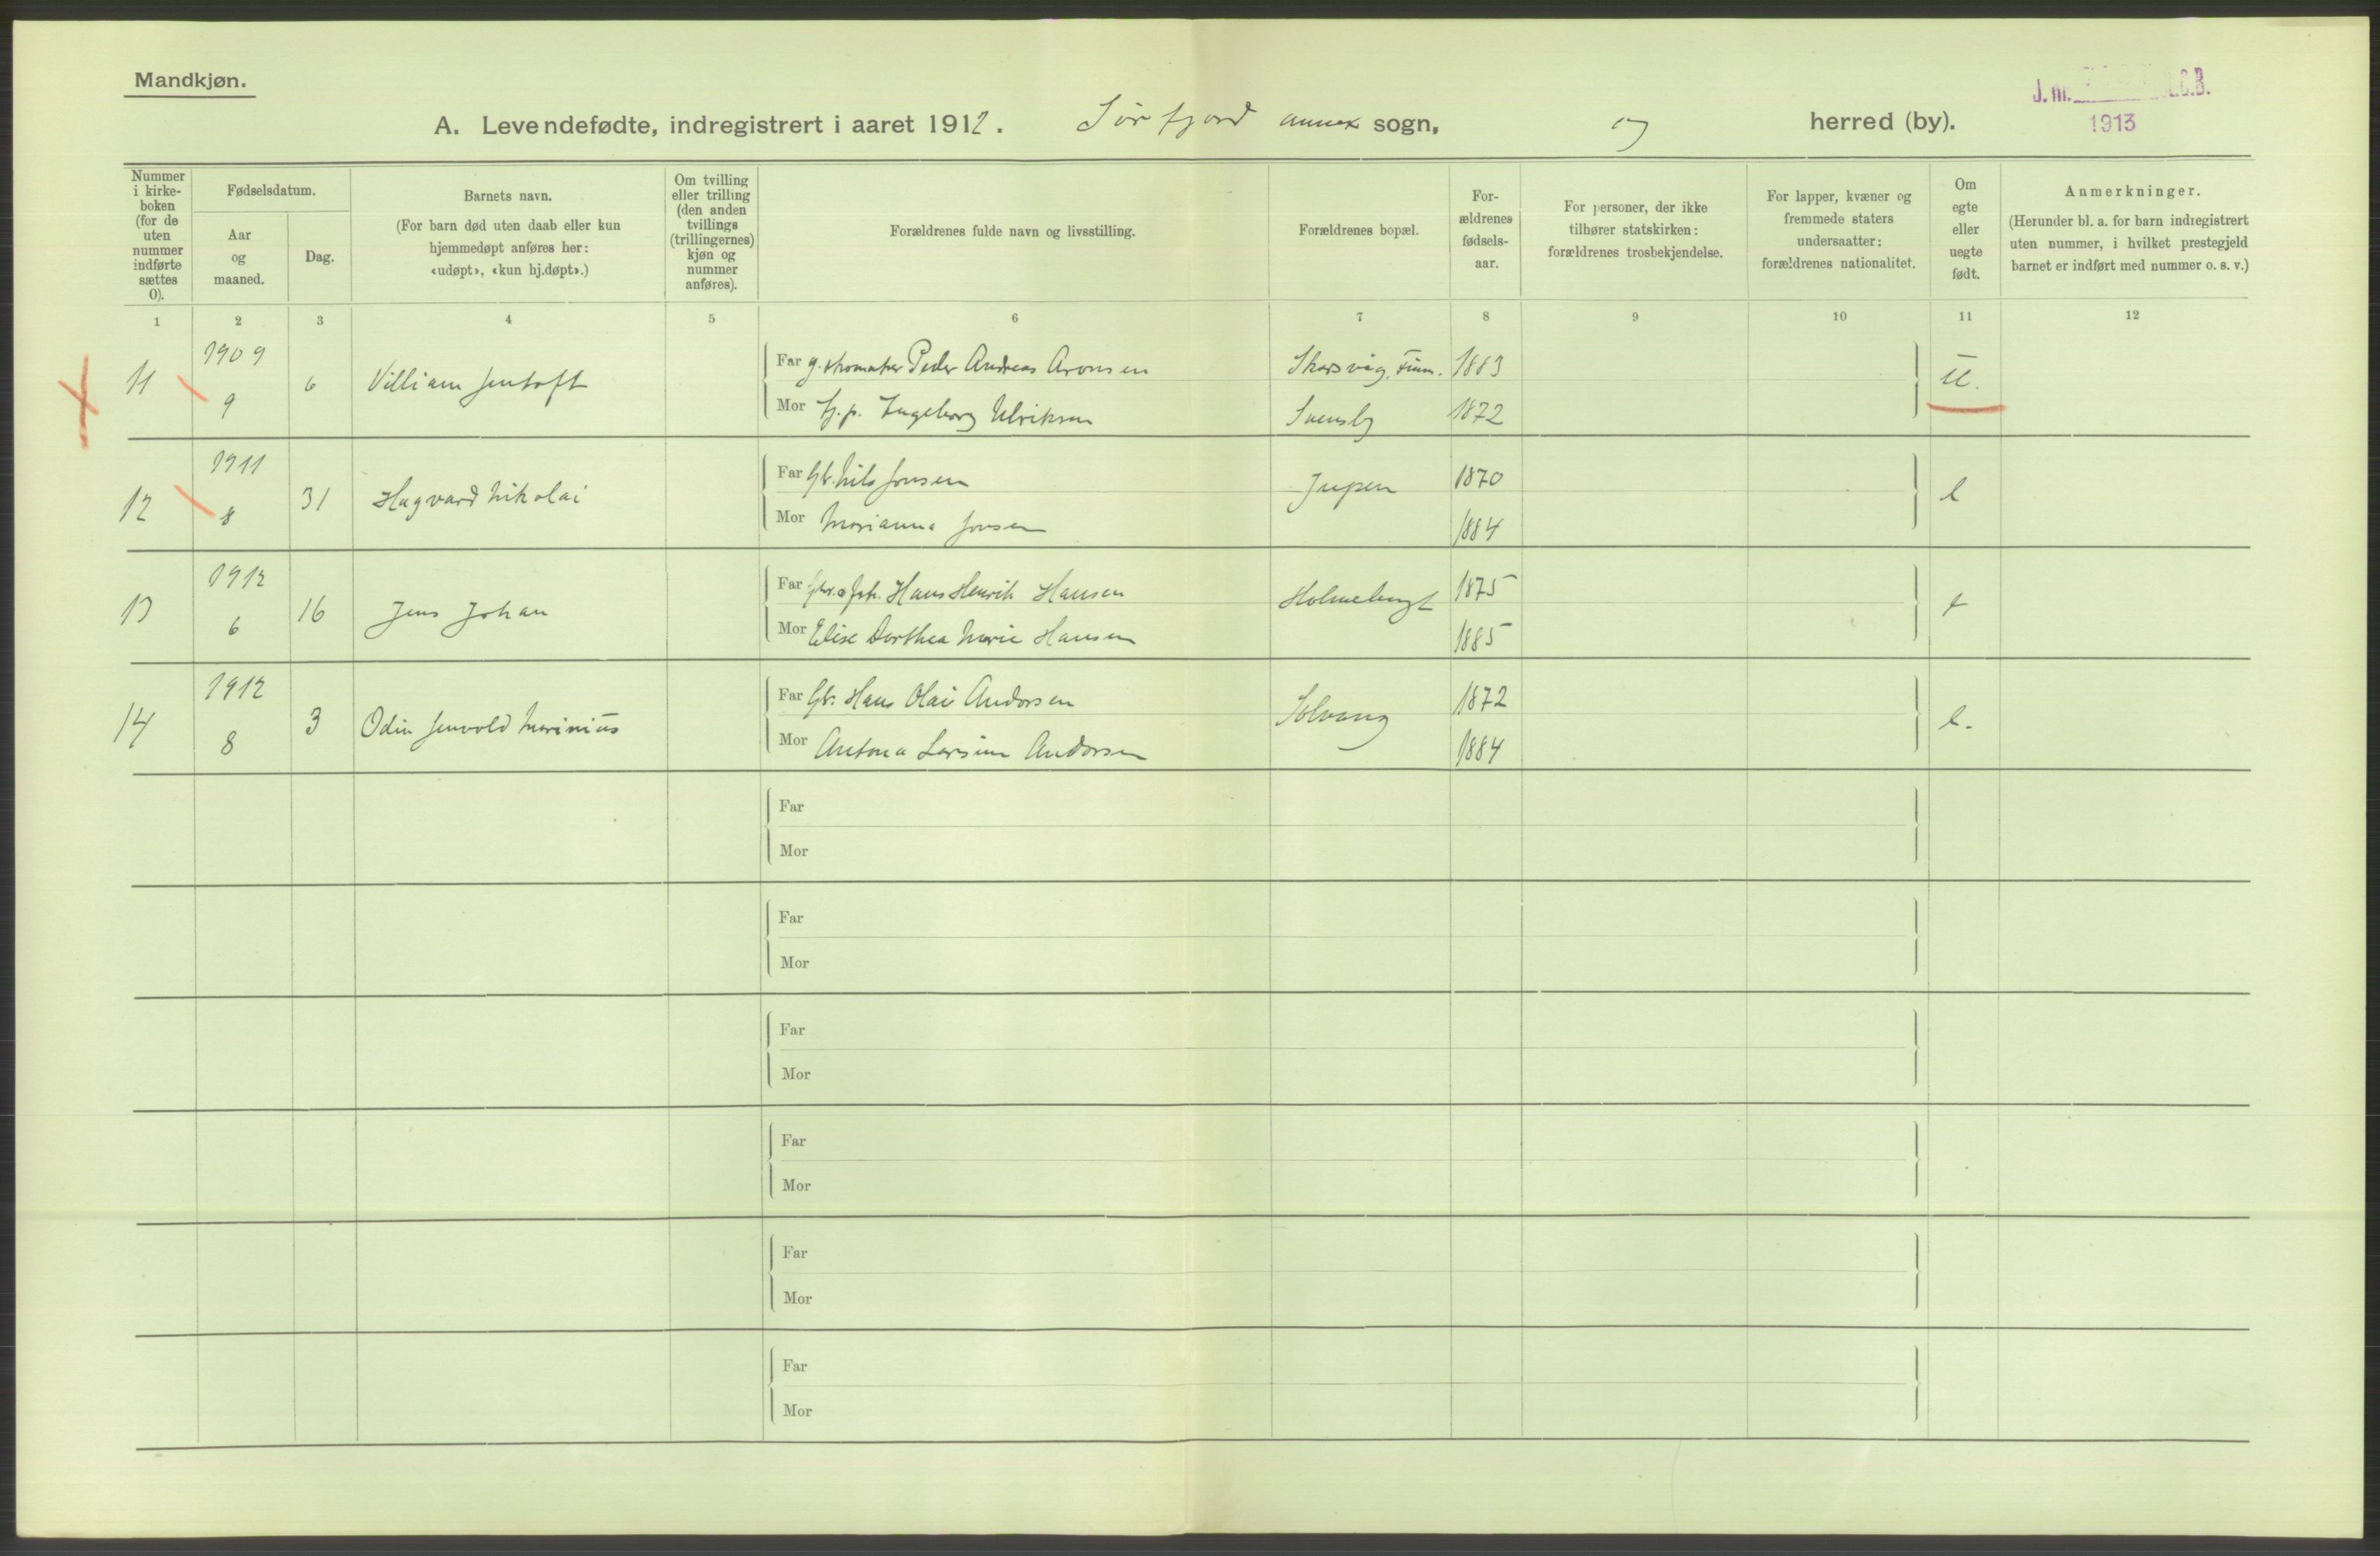 Mandkjøn.
J. nr. S.C.B.
1913
A. Levendefødte, indregistrert i aaret 1912. Sörfjord annex sogn, herred (by).
Nummer i kirkeboken (for de uten nummer indførte sættes 0).
Fødselsdatum.
Aar og maaned.
Dag.
Barnets navn.
(For barn død uten daab eller kun hjemmedøpt anføres her: «udøpt», «kun hj.døpt».)
Om tvilling eller trilling (den anden tvillings (trillingernes) kjøn og nummer anføres).
Forældrenes fulde navn og livsstilling.
Forældrenes bopæl.
Forældrenes fødselsaar.
For personer, der ikke tilhører statskirken: forældrenes trosbekjendelse.
For lapper, kvæner og fremmede staters undersaatter: forældrenes nationalitet.
Om egte eller uegte født.
Anmerkninger.
(Herunder bl. a. for barn indregistrert uten nummer, i hvilket prestegjeld barnet er indført med nummer o. s. v.)
1 2 3 4 5 6 7 8 9 10 11 12
11 1909 9 6 Villiam Jentoft
Far g. skomaker Peder Andreas Aronsen Skarsvig, Finm. 1883 U.
Mor Ingeborg Ulriksen Svensby 1872
12 1911 8 31 Hagvard Nikolai
Far Gbr. Nils Jonsen Jupen 1870 e
Mor Marianna Jonsen 1884
13 1912 6 16 Jens Johan
Far Hans Henrik Hansen Holmebugt 1875 e
Mor Elise Dorthea Marie Hansen 1885
14 1912 8 3 Odin Jenvold Marinius
Far Gbr. Hans Olai Andorsen Solvang 1872 e.
Mor Antona Larsine Andorsen 1884
Far
Mor
Far
Mor
Far
Mor
Far
Mor
Far
Mor
Far
Mor